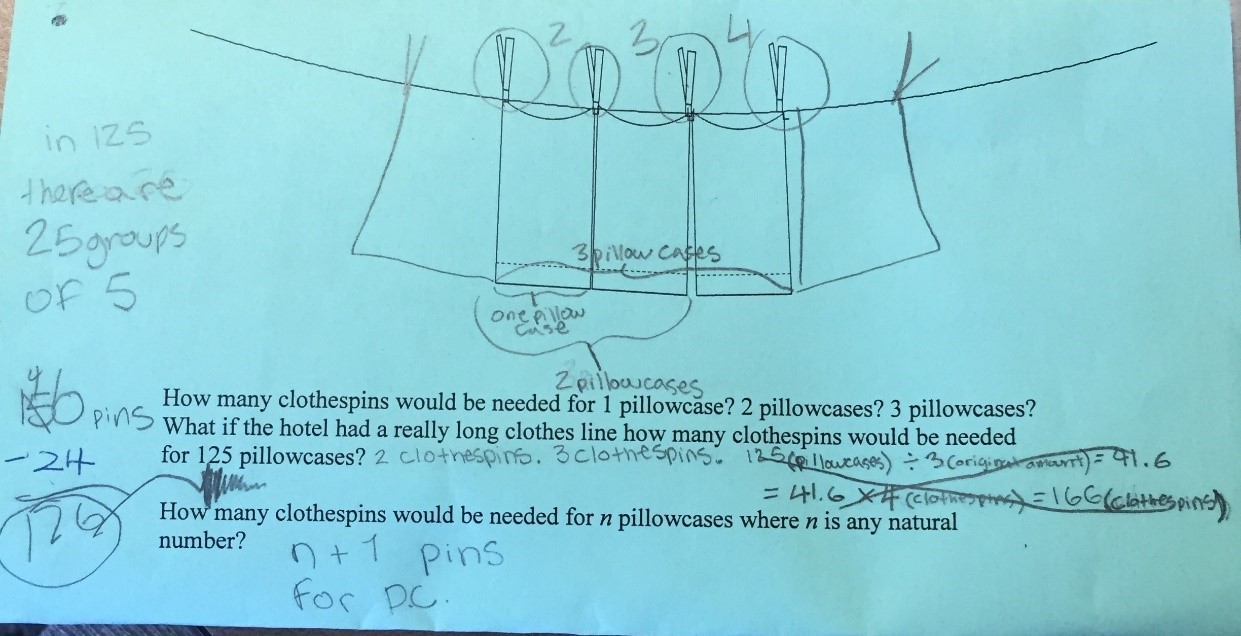 2 3 4
in 125
there are
25 groups
of 5
3 pillow cases
one pillow
case
2 pillowcases
pins
How many clothespins would be needed for 1 pillowcase? 2 pillowcases? 3 pillowcases?
What if the hotel had a really long clothes line how many clothespins would be needed
for 125 pillowcases? 2 clothespins. 3 clothespins. 125(pillowcases) ÷ 3 (original amount) = 41.6
= 41.6 x 4 (clothespins) = 166 (clothespins)
- 24
126
How many clothespins would be needed for n pillowcases where n is any natural
number?
n + 1 pins
for p.c.